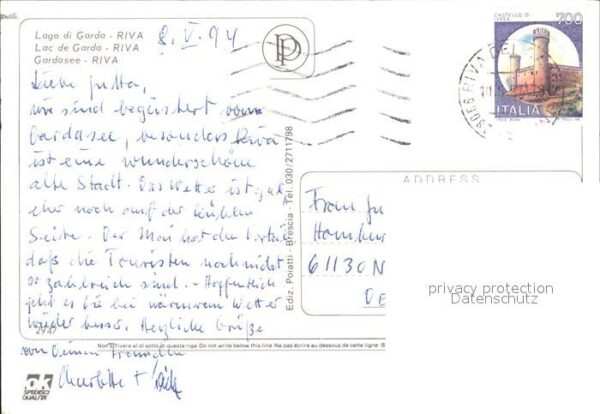 Lago di Garda - RIVA
Lac de Garda - RIVA
Gardasee - RIVA
8. V. 94
PP
CASTELLO DI
700
ITALIA
RIVA DEL
Liebe Jutta,
wir sind begeistert vom
Gardasee, besonders Riva
ist eine wunderschöne
alte Stadt. Das Wetter ist gut
eher noch auf der kühlen
Seite. Der Mai hat den Vorteil
daß die Touristen noch nicht
so zahlreich sind. - Hoffentlich
geht es Dir bei wärmerem Wetter
wieder besser. Herzliche Grüße
von Deinen Freunden
Charlotte +
Ediz. Poiatti - Brescia - Tel. 030/2711798
ADDRESS
Frau Ju
Hombur
61130 N
DE
privacy protection
Datenschutz
2947
Non scrivere al di sotto di questa riga - Do not write below this line - Ne pas écrire au dessous de cette ligne - B
ok
SPEDISCI
QUALITÀ